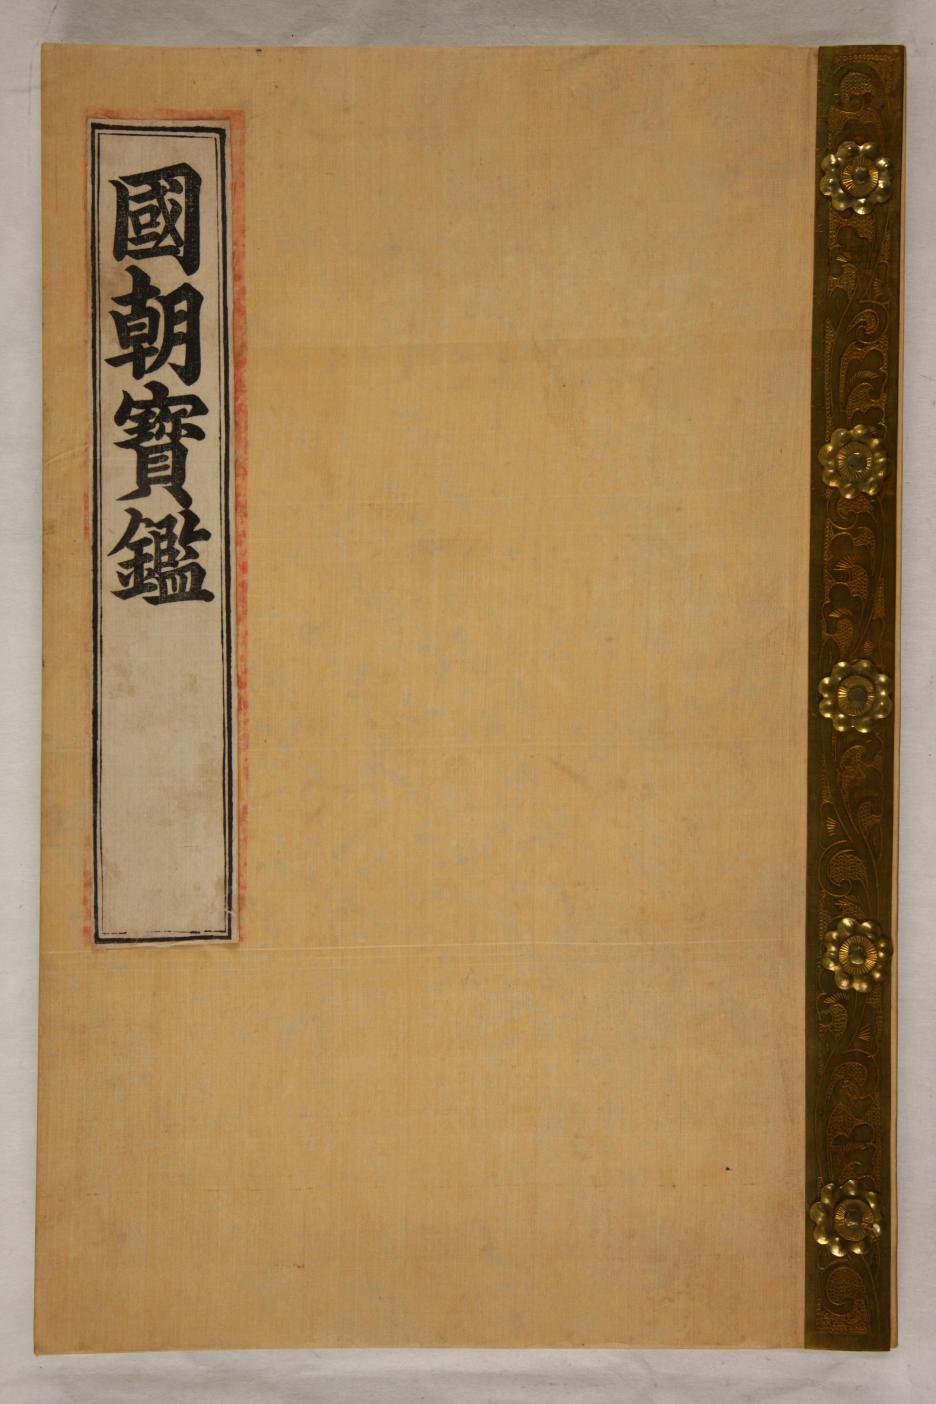 國朝寶鑑